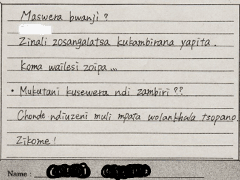 Maswera bwanji?
Zinali zosangalatsa kukambirana yapita.
Koma wailesi zoipa...
• Mukutani kusewera ndi zambiri??
Chonde ndiuzeni muli mpata wolankhula tsopano
Zikomo!
Name: